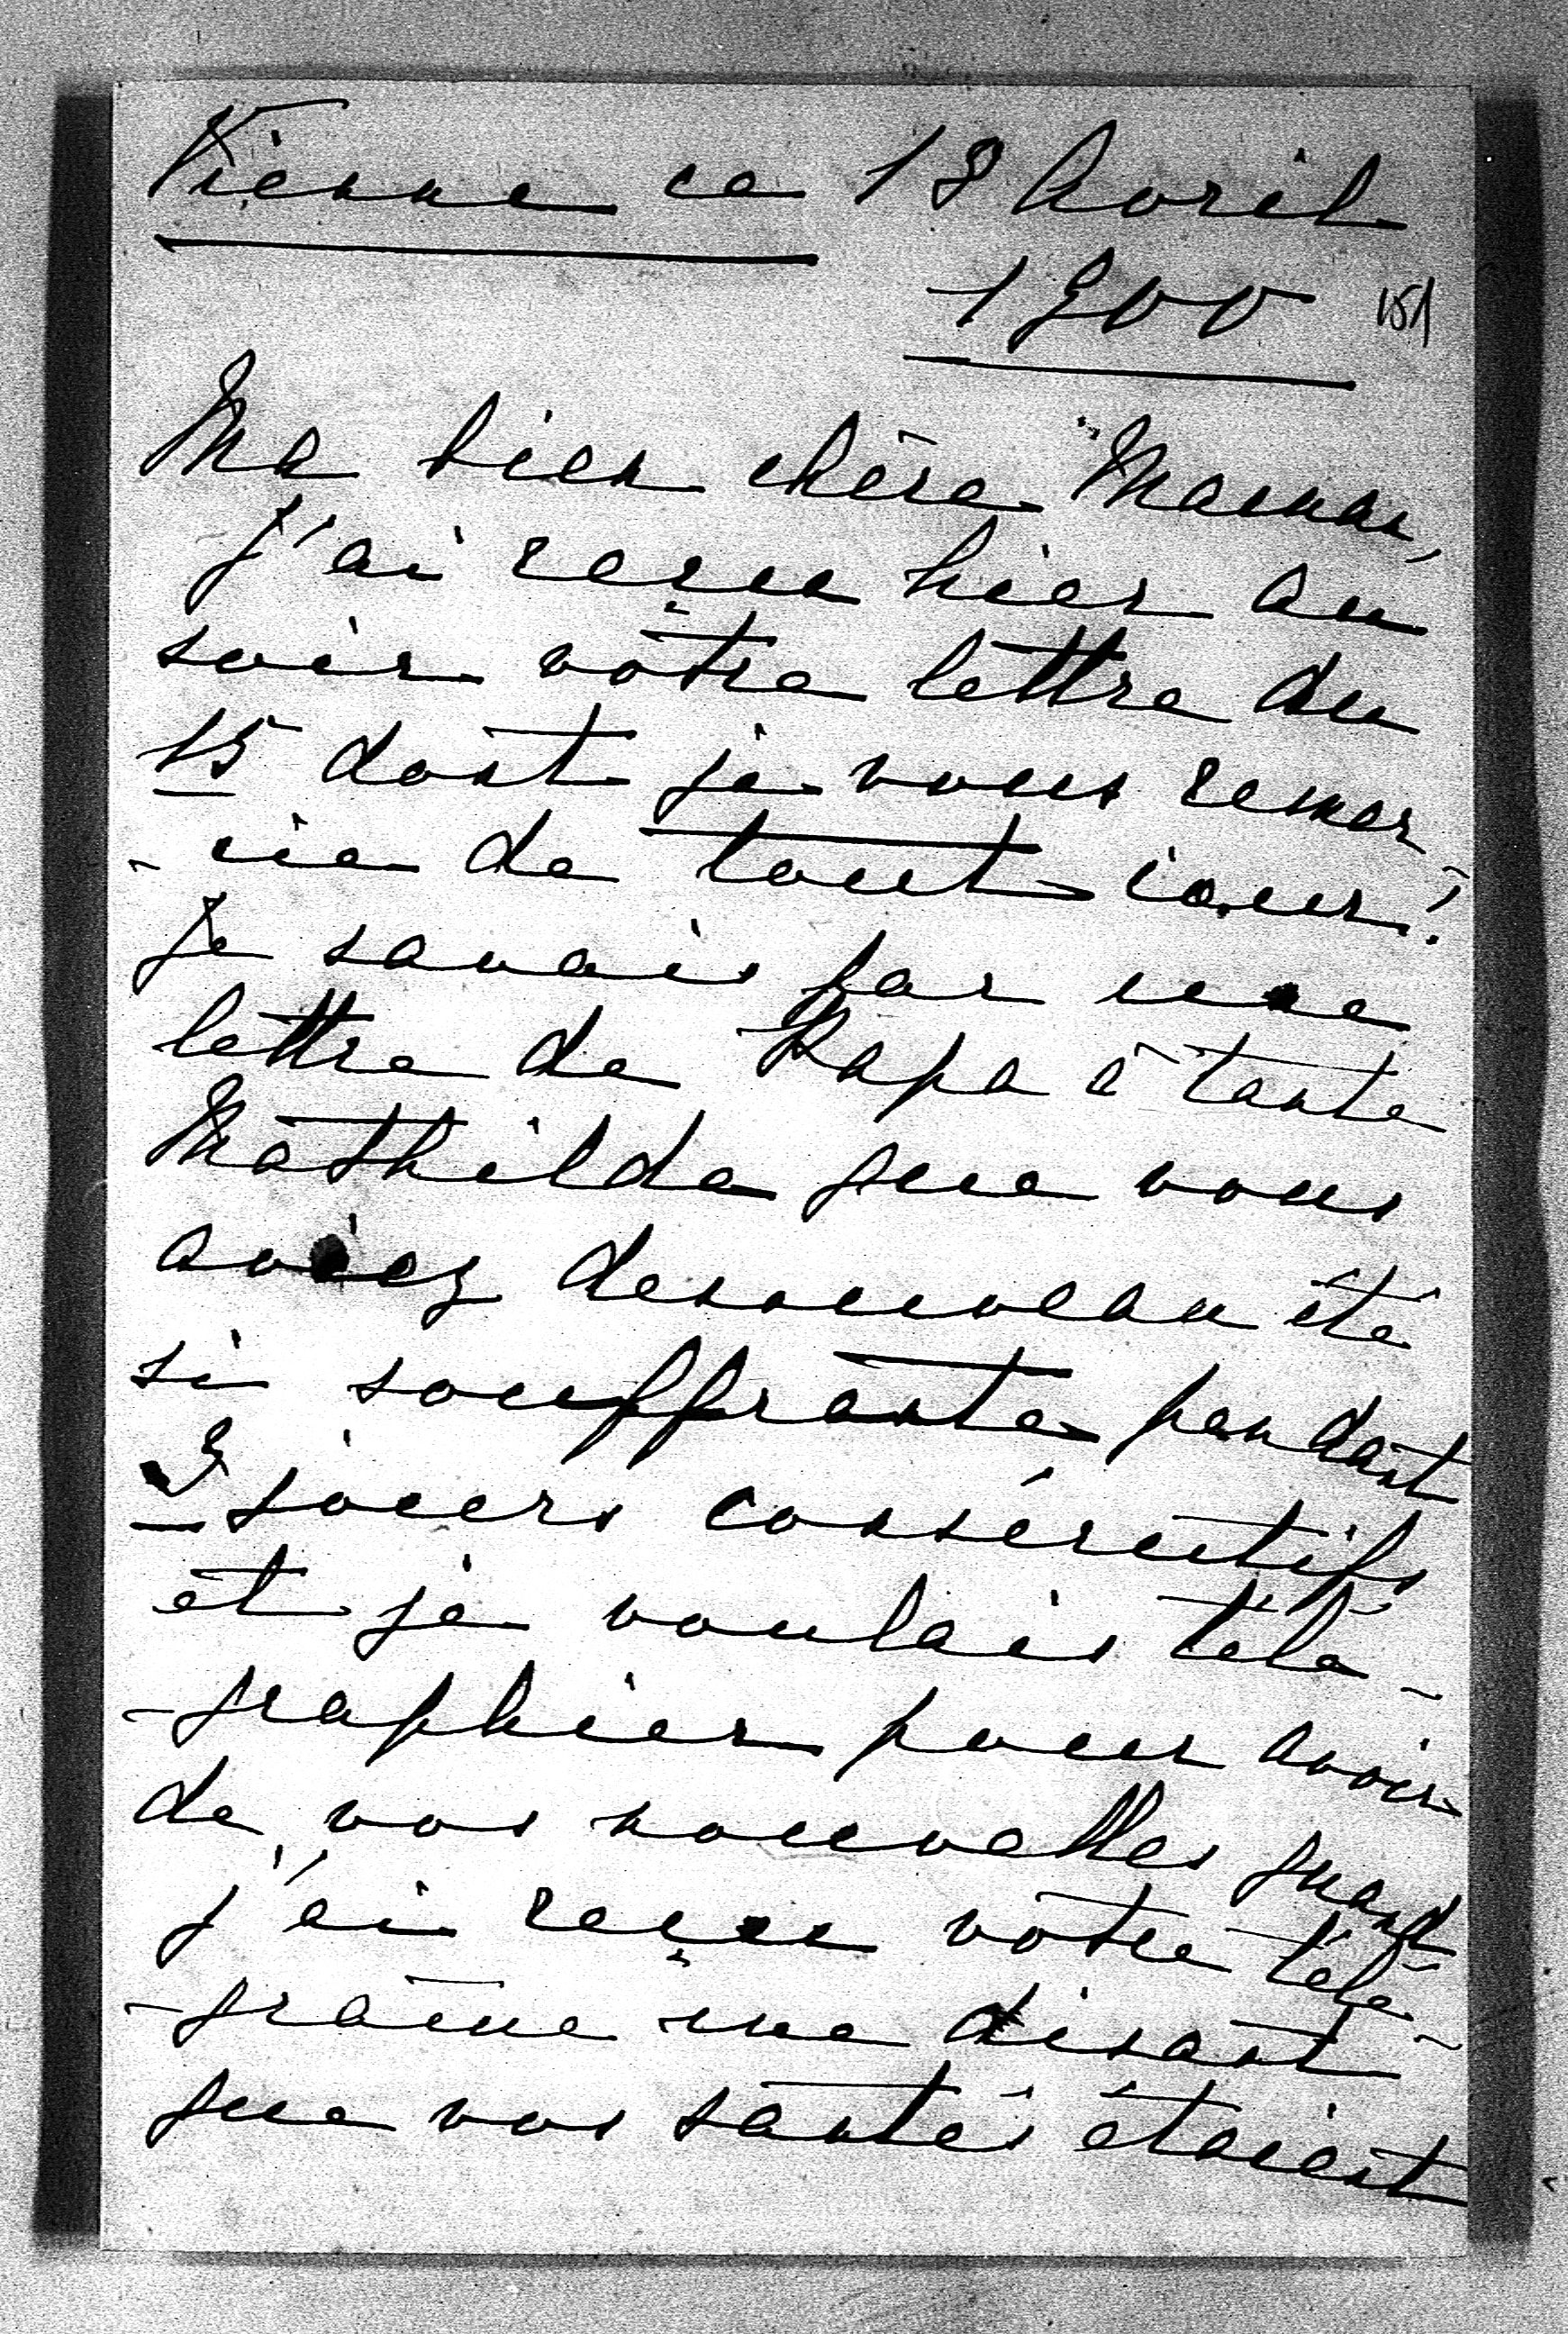 Vienne ce 18 Avril
1900
151
Ma bien chère Maman,
J'ai reçue hier au
soir vôtre lettre du
15 dont je vous remer-
-cie de tout cœur!
Je savais par une
lettre de Papa à tante
Mathilde que vous
aviez denouveau été
si souffrante pendant
jours consécutifs
et je voulais télé-
-graphier pour avoir
de vos nouvelles quand
j'ai reçue votre télé-
-grame me disant
que vos santés étaient